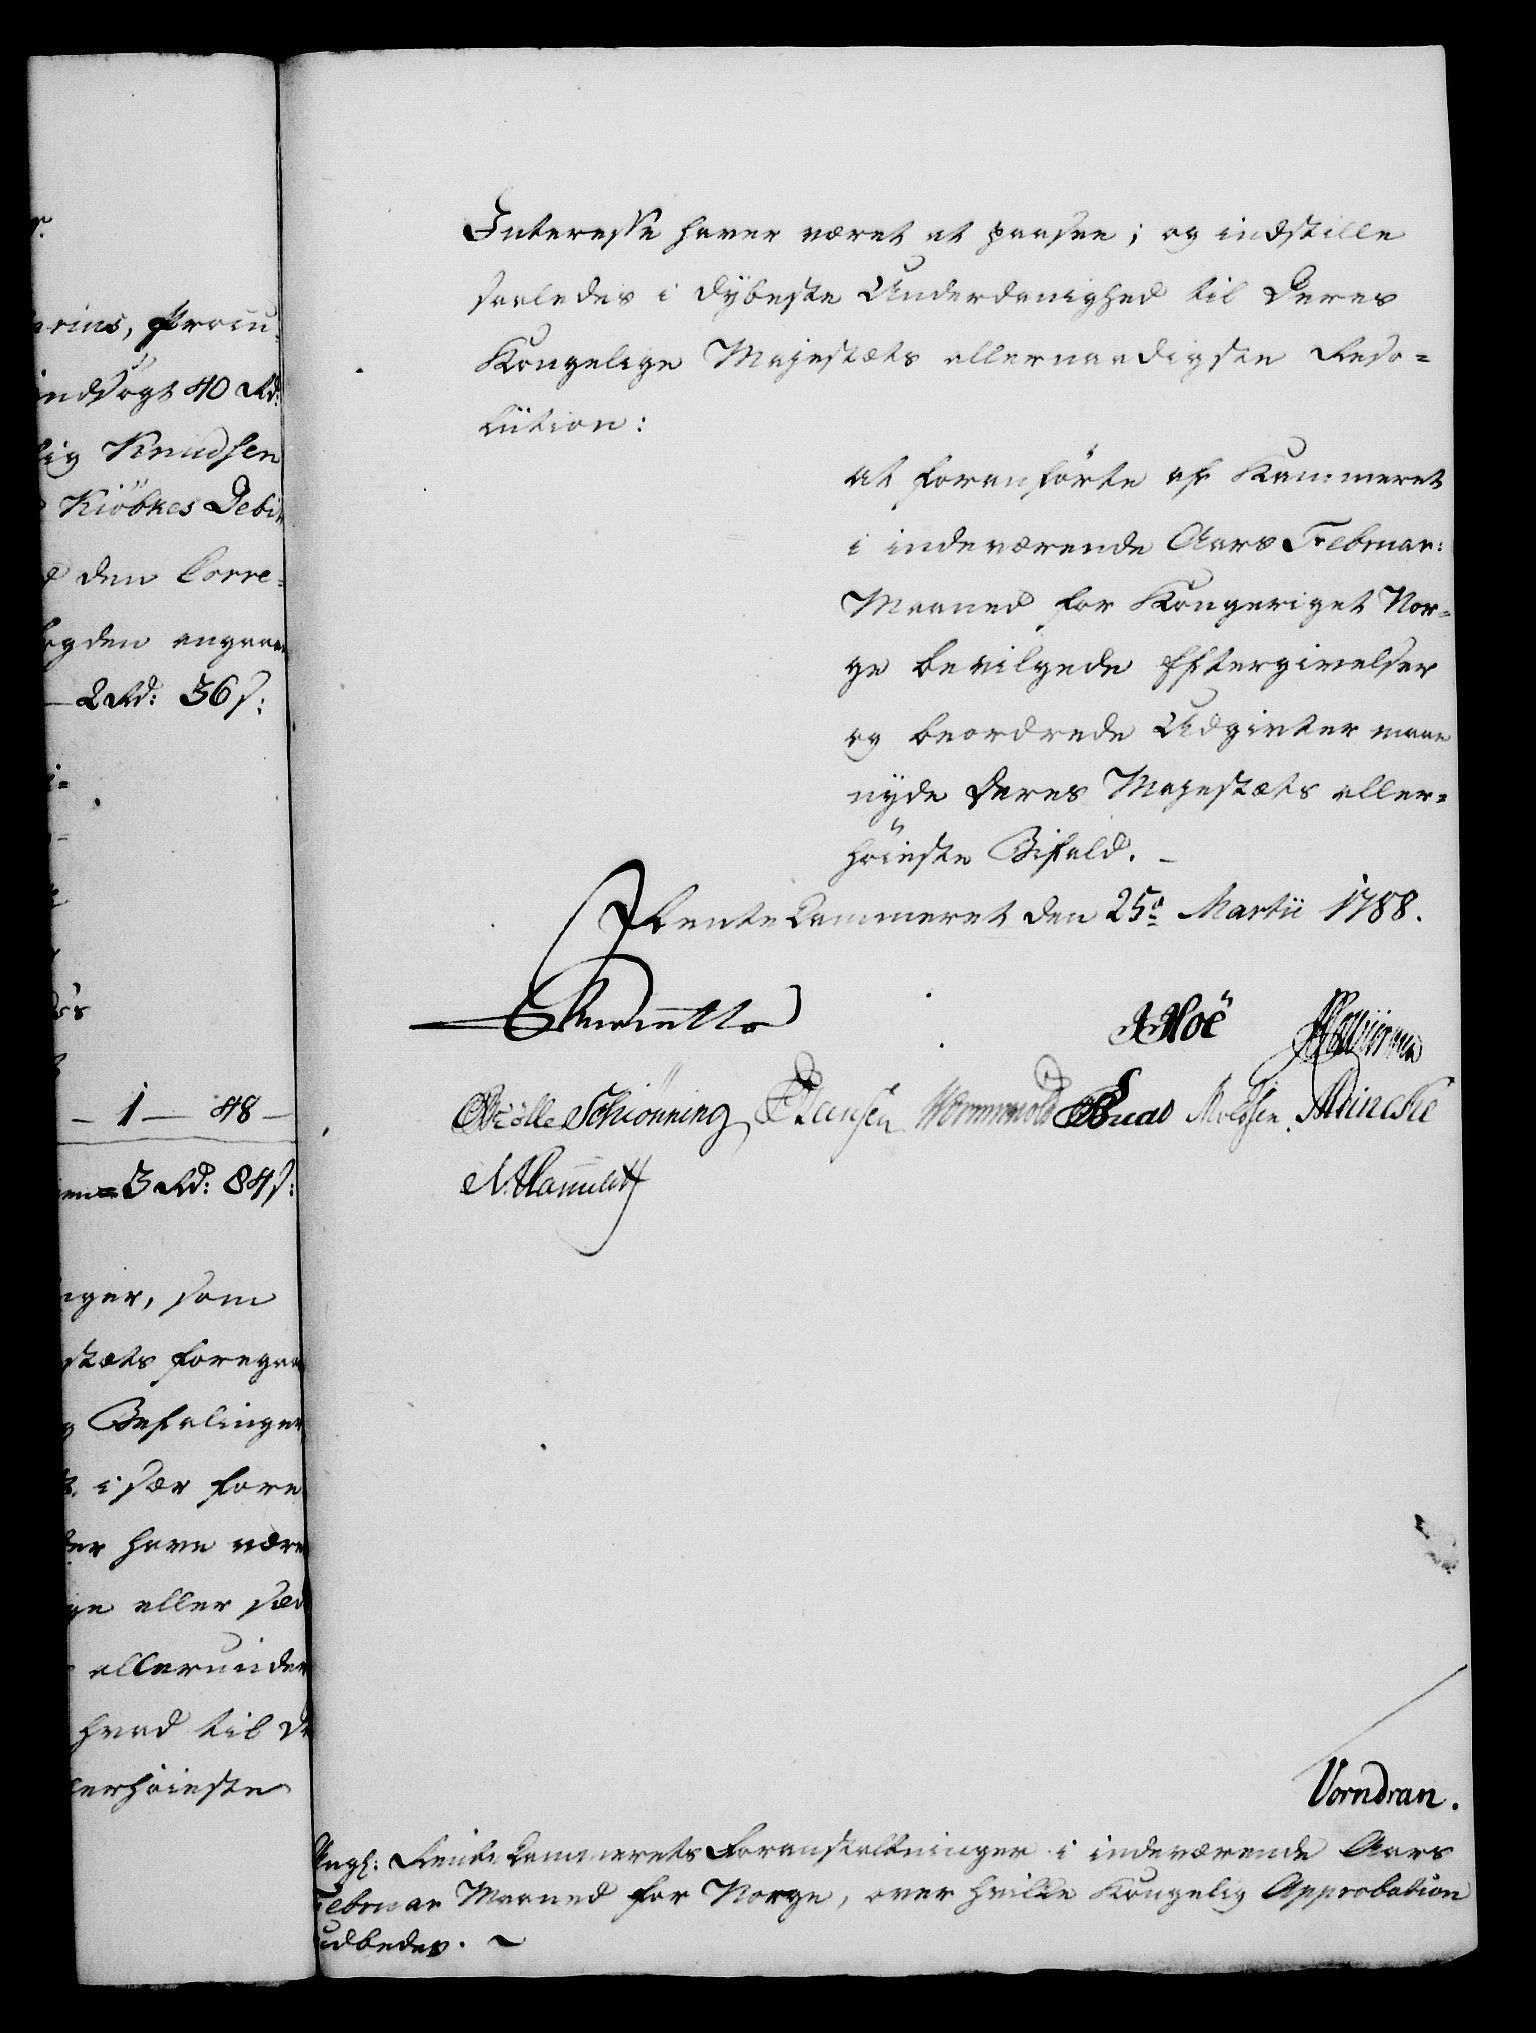 r.
arius, Procu¬
indsøgt 40 Rd:
lig Knudsen
Kiöbkes Debi
e den Corre¬
ogden angaae
— 2 Rd: 36 s:
— 1 — 48 —
3 Rd: 84 s:
nger, som
stæts foregaa
g Befalinger
i sær fore
der have være
ge eller sæd
allerunder
hvad til De
lerhöieste
Interesse haver været at paasee; og indstille
saaledes i dÿbeste Underdanighed til Deres
Kongelige Majestæts allernaadigste Reso=
lution:
at foranförte af Kammeret
i indeværende Aars Februar:
Maaned for Kongeriget Nor=
ge bevilgede Eftergivelser
og beordrede Udgivter maae
nÿde Deres Majestæts aller=
höieste Bifald. —
Rentekammeret den 25d Martii 1788.
JHoë
Mölle Schiönning Hansen Wormwold Buas Meincke
Vorndran.
Angl: Rentekammerets Foranstaltninger i indeværende Aars
Februar Maaned for Norge, over hvilke Kongelig Approbation
udbedes. ~